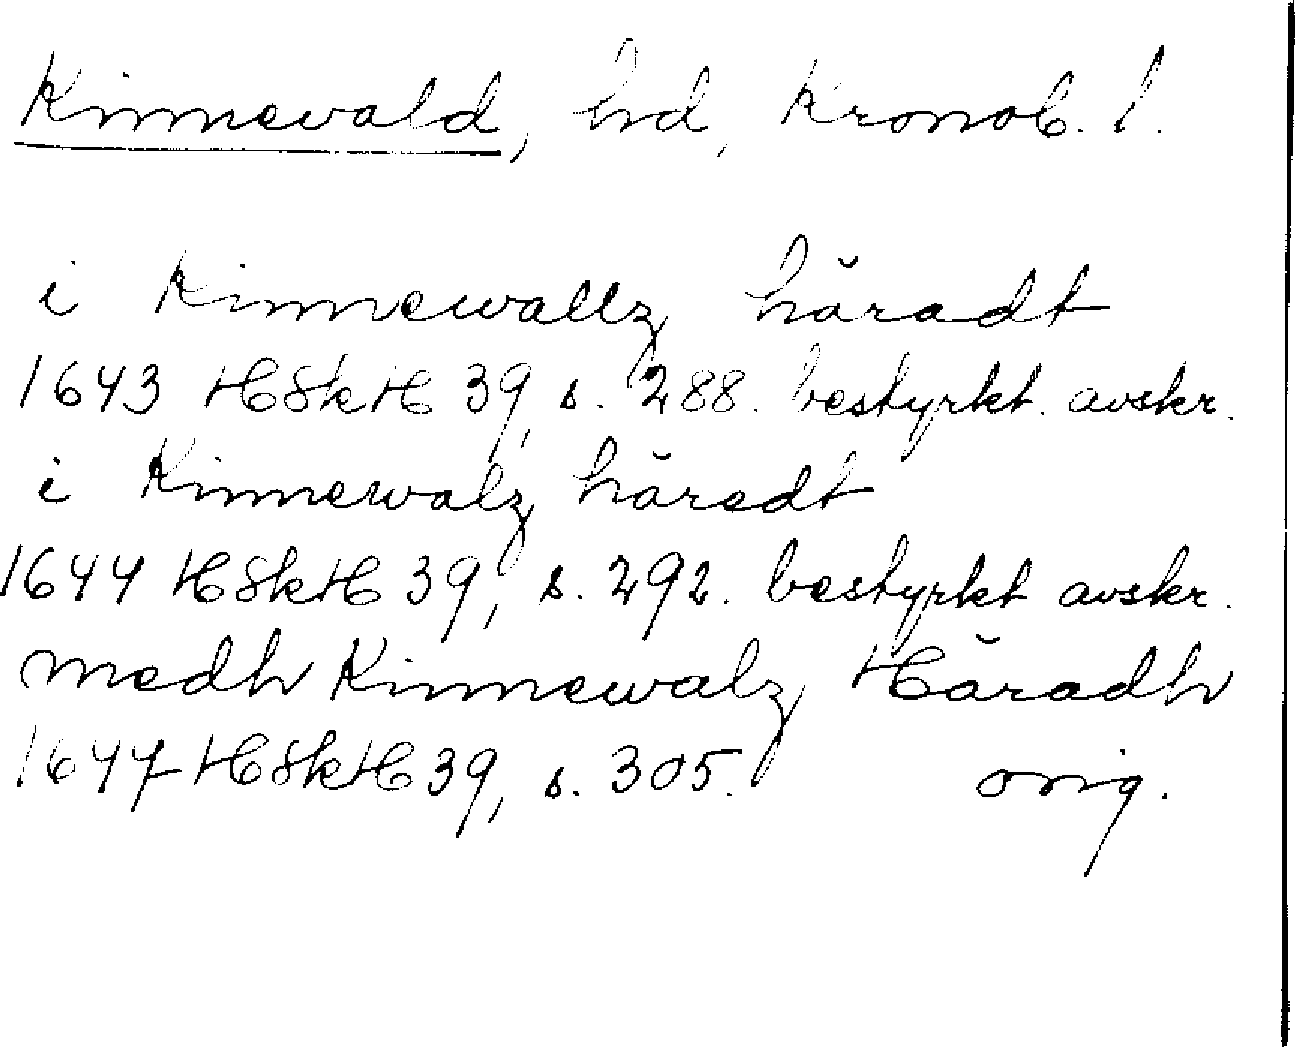 Kinnevald, hd, Kronob. l.
i Kinnewallz häradt
1643 HSkH 39, s. 288. bestyrkt. avskr.
i Kinnewalz häredt
1644 HSkH 39, s. 292. bestyrkt avskr.
medh Kinnewalz Häradh
1647 HSkH 39, s. 305. orig.